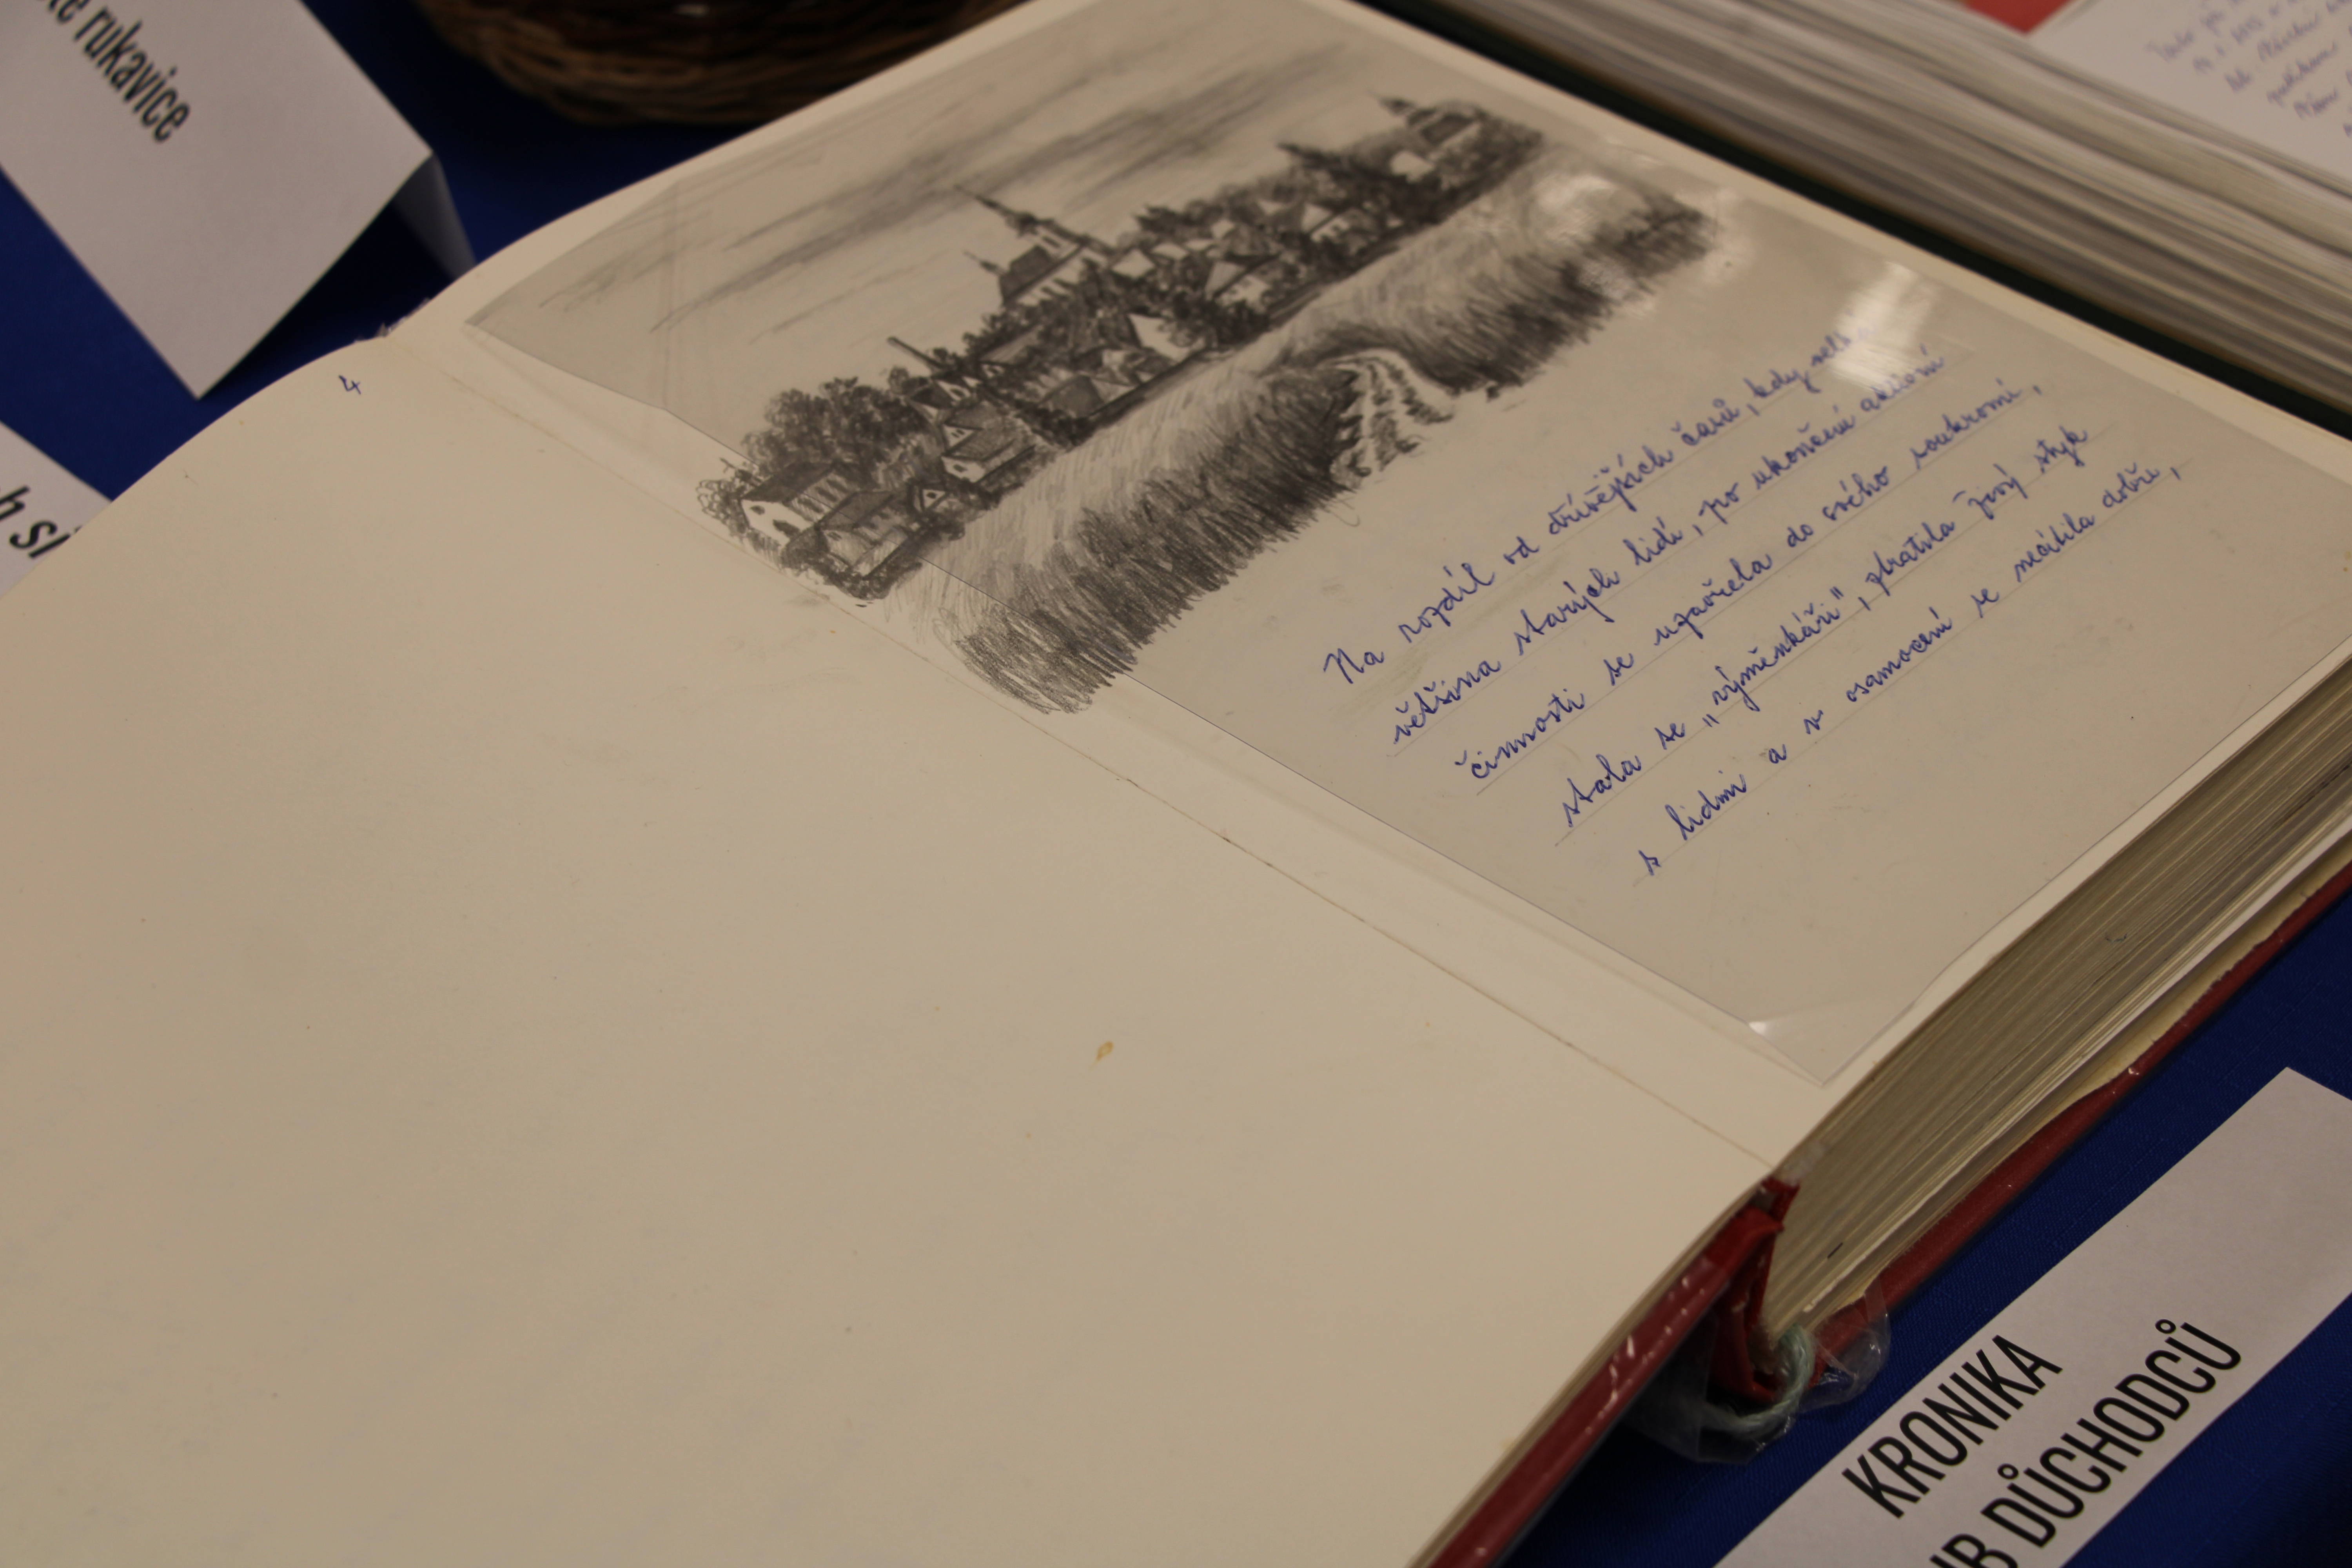 rukavice
4
Na rozdíl od dřívějších časů, kdy velká
většina starých lidí, po ukončení aktivní
činnosti se uzavřela do svého soukromí,
stala se „výměnkáři", ztratila živý styk
s lidmi a v osamocení se necítila dobře,
KRONIKA
DŮCHODCŮ